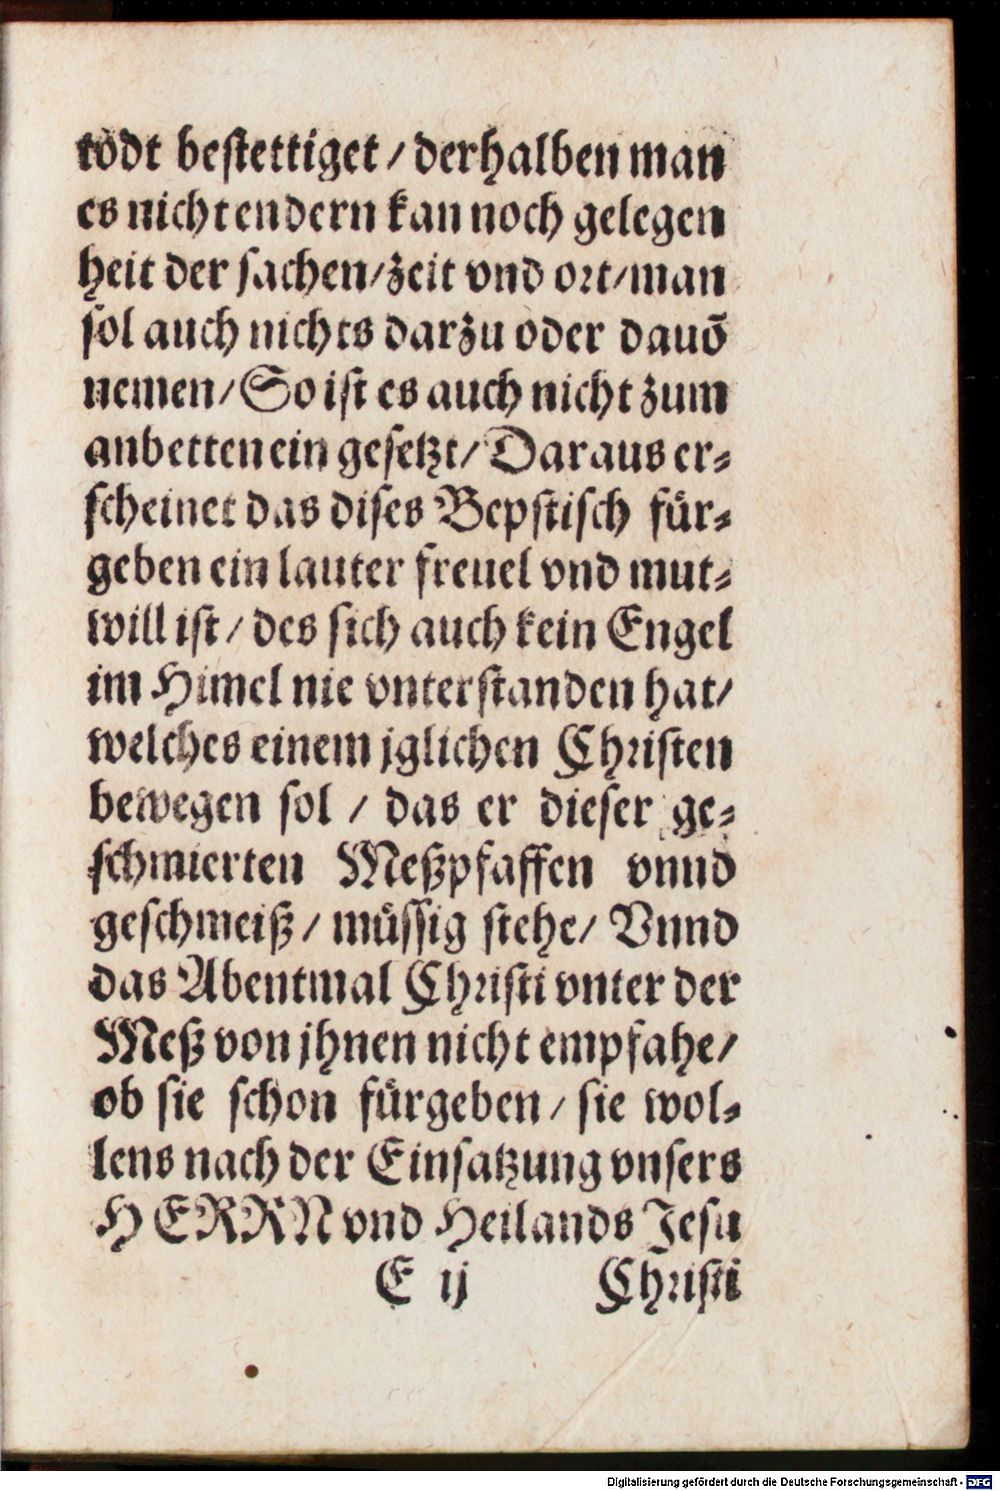 todt bestettiget / derhalben man
es nicht endern kan noch gelegen
heit der sachen/zeit vnd ort/man
sol auch nichts darzu oder dauō
nemen/So ist es auch nicht zum
anbetten ein gesetzt/Daraus er⸗
scheinet das dises Bepstisch für⸗
geben ein lauter freuel vnd mut⸗
will ist / des sich auch kein Engel
im Himel nie vnterstanden hat/
welches einem jglichen Christen
bewegen sol / das er dieser ge⸗
schmierten Meßpfaffen vnnd
geschmeiß / müssig stehe/ Vnnd
das Abentmal Christi vnter der
Meß von jhnen nicht empfahe/
ob sie schon fürgeben / sie wol⸗
lens nach der Einsatzung vnsers
HERRN vnd Heilands Jesu
E ij Christi
Digitalisierung gefördert durch die Deutsche Forschungsgemeinschaft - DFG